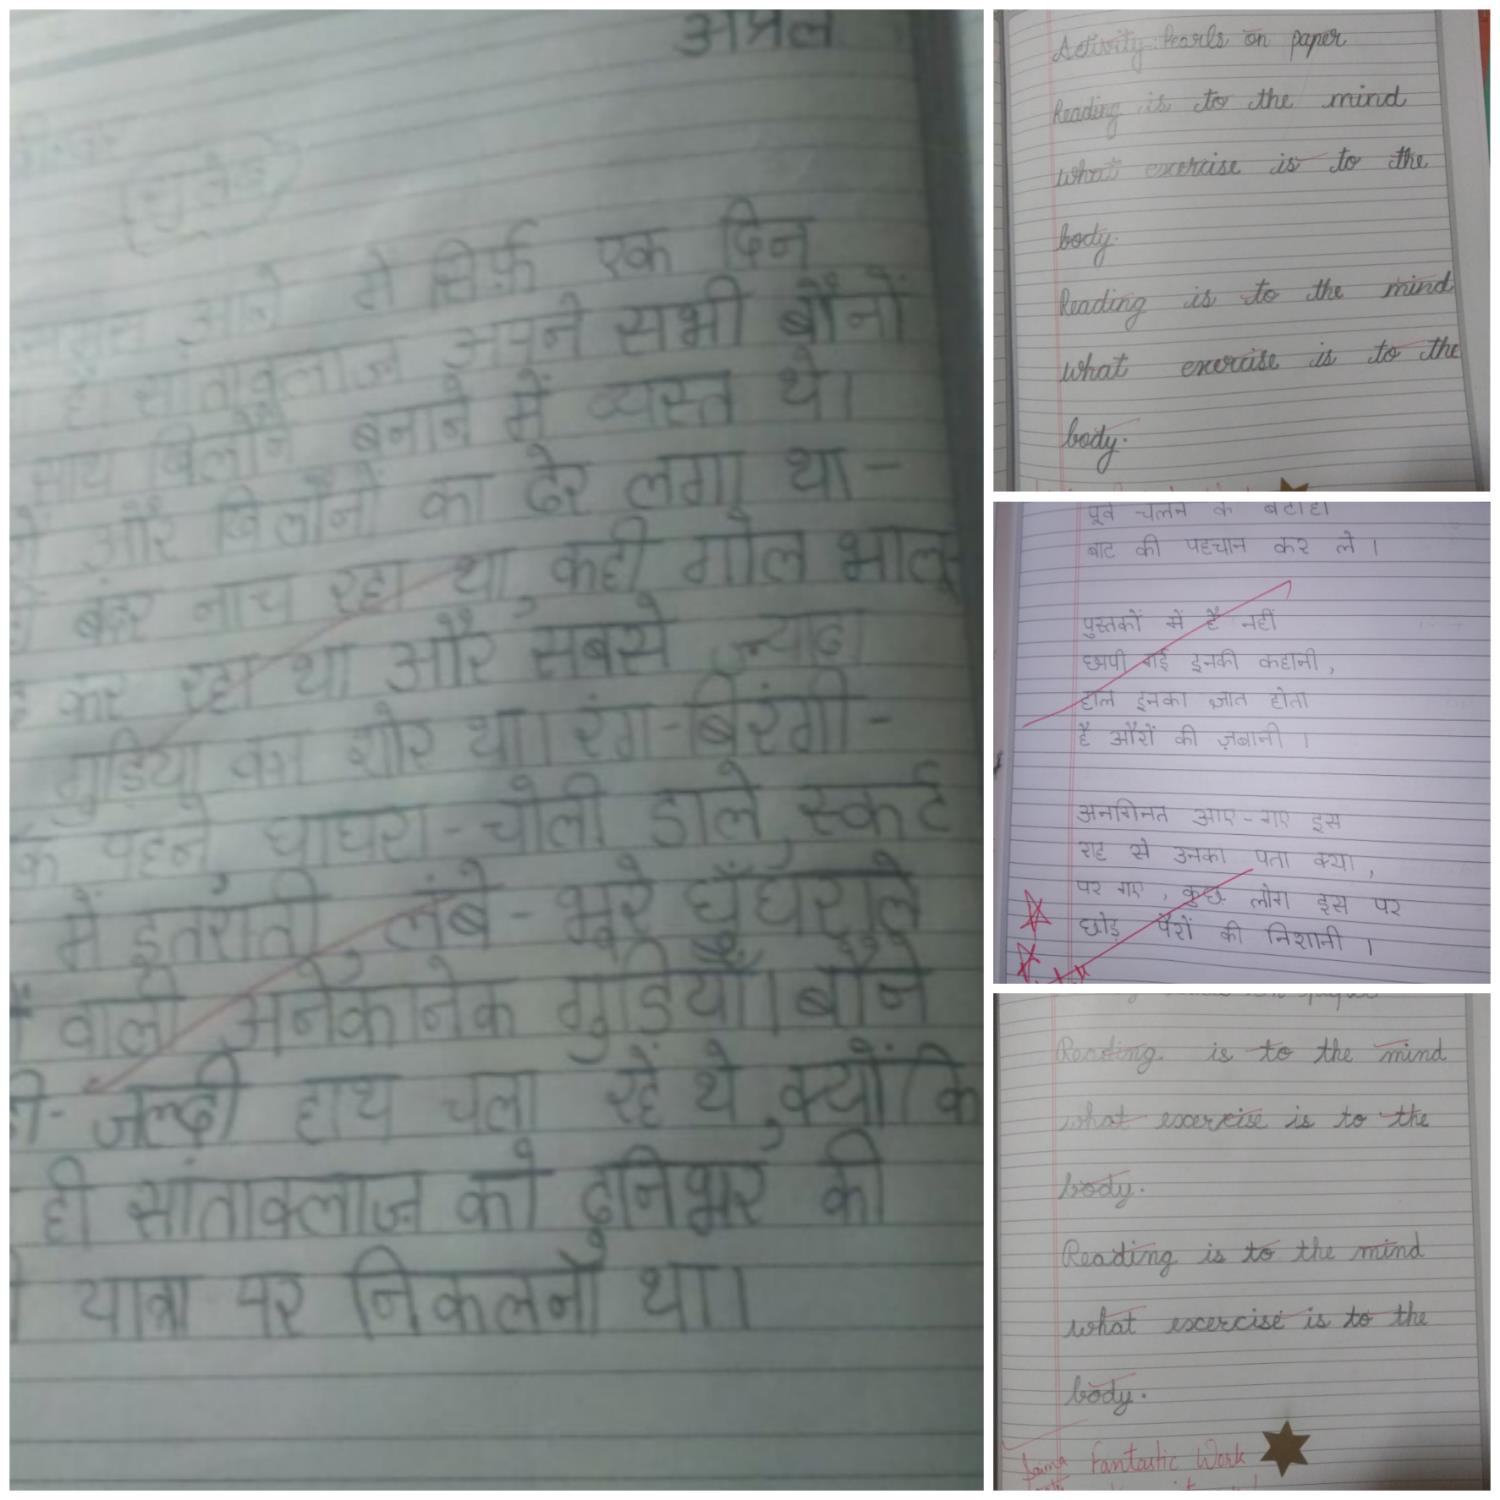 अप्रैल
आने से सिर्फ़ एक दिन
सांताक्लाज अपने सभी बौनों
साथ खिलौने बनाने में व्यस्त थे।
और खिलौनों का ढेर लगा था -
बंदर नाच रहा था, कहीं गोल भालू
कर रहा था और सबसे ज़्यादा
गुड़िया का शोर था। रंग-बिरंगी-
पहने घाघरा-चोली डाले, स्कर्ट
में इतराती, लंबे-भूरे घुँघराले
वाली अनेकानेक गुड़ियाँ। बौने
जल्दी हाथ चला रहे थे, क्योंकि
ही सांताक्लाज़ को दुनिभर की
यात्रा पर निकलना था।
Activity: Pearls on paper
Reading is to the mind
what exercise is to the
body.
Reading is to the mind
what exercise is to the
body.
पूर्व चलने के बटोही
बाट की पहचान कर ले।
पुस्तकों में है नहीं
छापी गई इनकी कहानी,
हाल इनका ज्ञात होता
है औरों की ज़बानी।
अनगिनत आए-गए इस
राह से उनका पता क्या,
पर गए, कुछ लोग इस पर
छोड़ पैरों की निशानी।
Reading is to the mind
what exercise is to the
body.
Reading is to the mind
what excercise is to the
body.
Fantastic Work